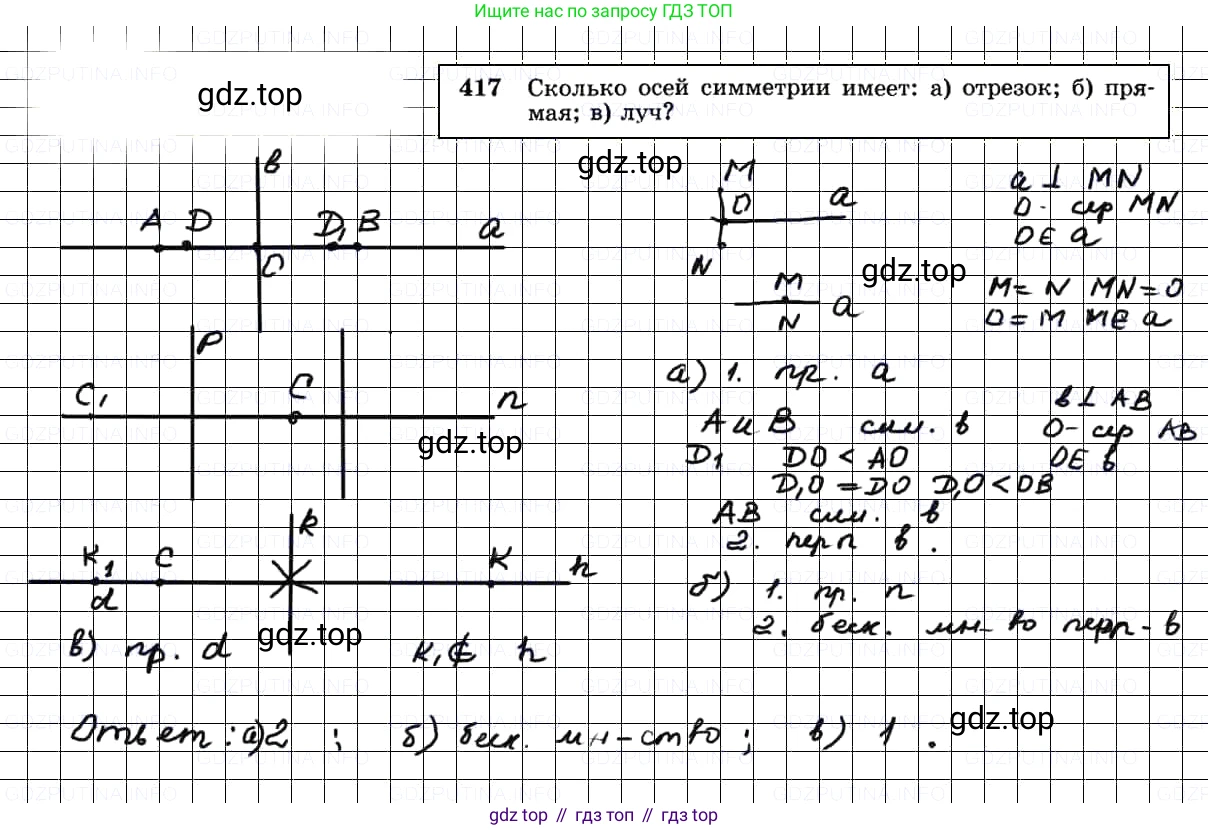 Ищите нас по запросу ГДЗ ТОП
gdz.top
417 Сколько осей симметрии имеет: а) отрезок; б) пря-
мая; в) луч?
gdz.top
в
A D D₁ B a
O
M
O a
N
a ⊥ MN
O - сер MN
O ∈ a
gdz.top
M
a
N
M = N MN = 0
O = M M ∈ a
P
C₁ C n
gdz.top
а) 1. пр. a
A и B сим. в
в ⊥ AB
D₁ DO < AO
O - сер AB
O ∈ в
D₁O = DO D₁O < OB
AB сим. в
2. перп в.
k
K₁ C K h
d
б) 1. пр. n
2. беск. мн-во перп-в
gdz.top
в) пр. d K₁ ∉ h
Ответ: а) 2 ; б) беск. мн-ство ; в) 1 .
gdz.top
gdz top // гдз топ // гдз top